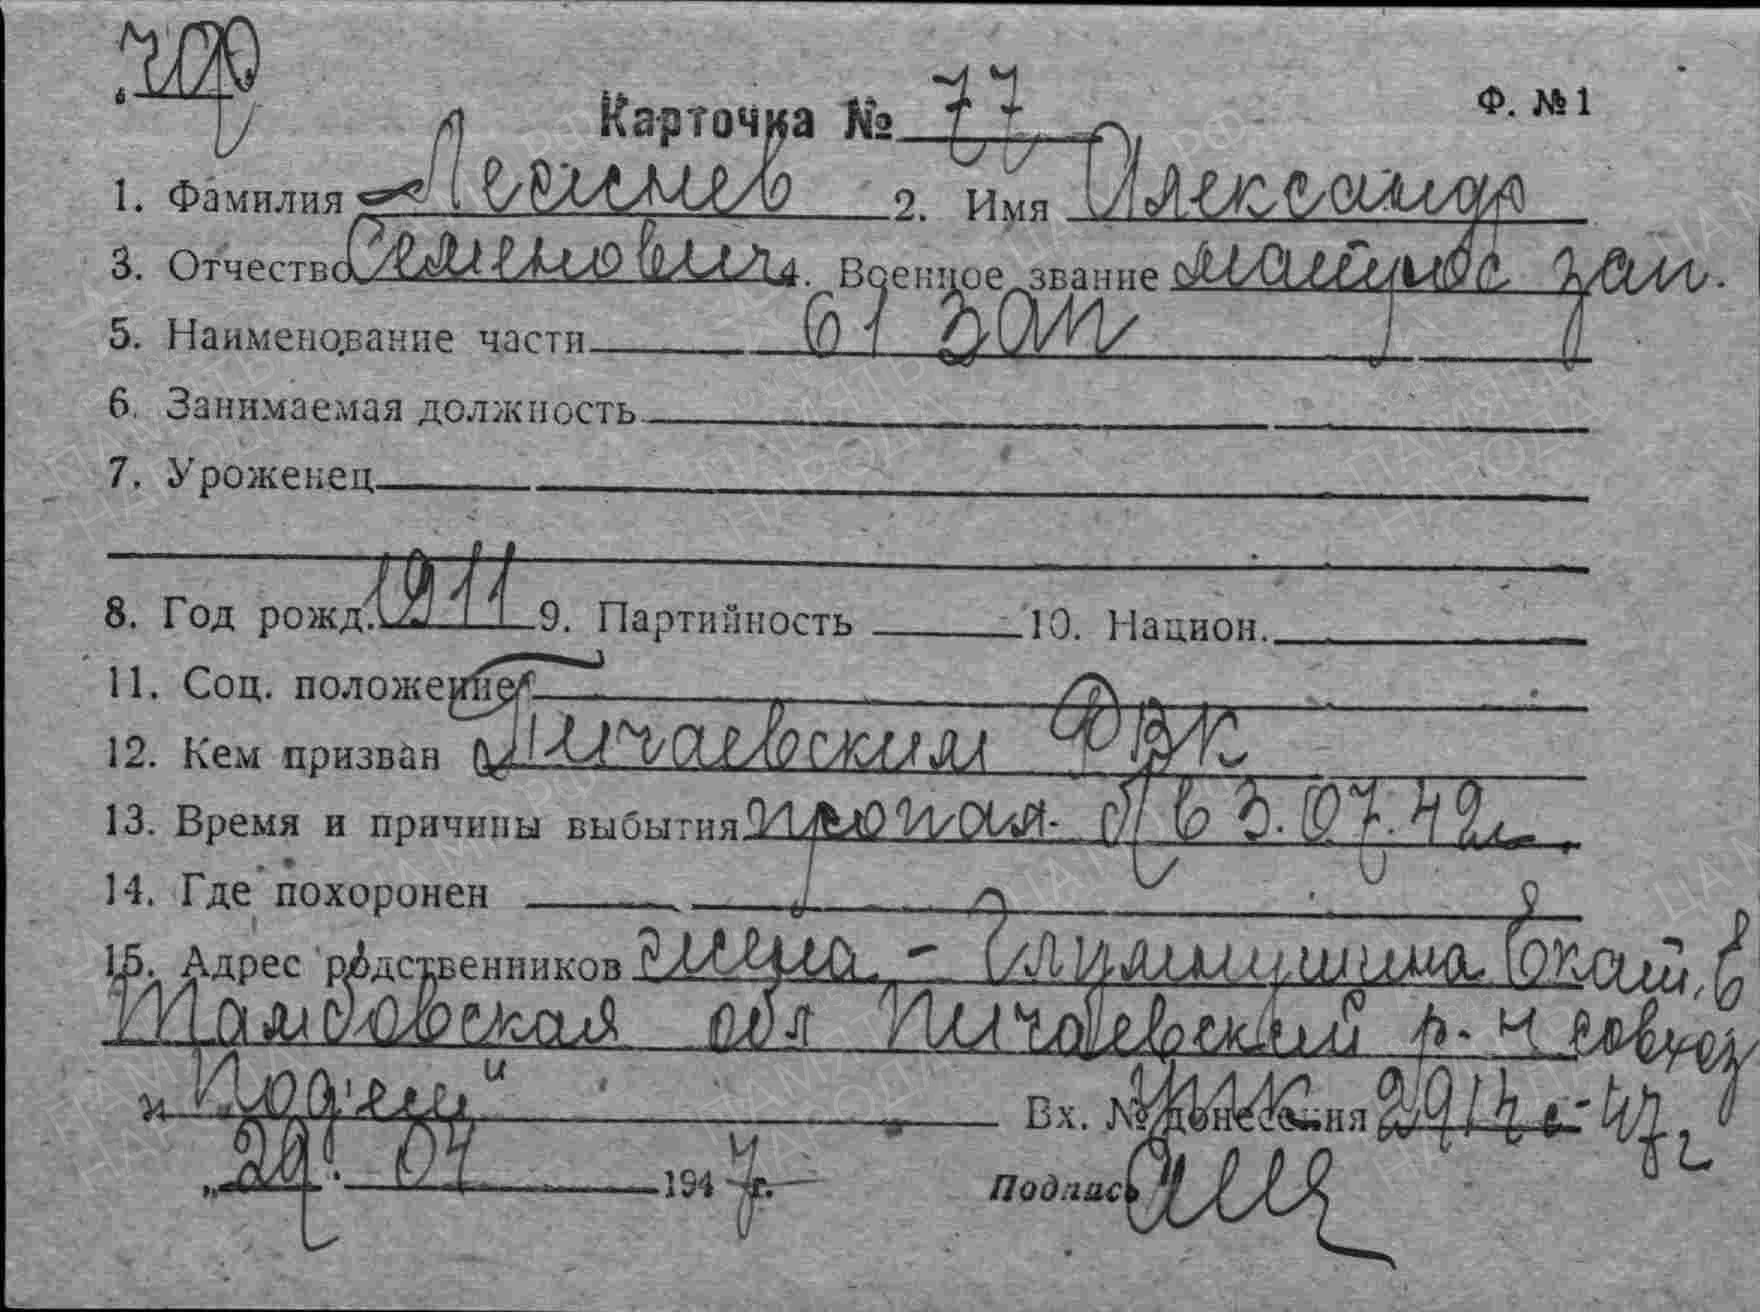 Карточка № 77 Ф. № 1
1. Фамилия 2. Имя Александр
3. Отчество Семенович 4. Военное звание матрос зап.
5. Наименование части 61 зап
6. Занимаемая должность
7. Уроженец
8. Год рожд. 1911 9. Партийность 10. Национ.
11. Соц. положение
12. Кем призван Пичаевским РВК
13. Время и причины выбытия пропал 3.07.42г.
14. Где похоронен
15. Адрес родственников жена - Екат. в
Тамбовская обл Пичаевский р-н совхоз
Вх. № донесения
"29". 04 1947г. Подпись